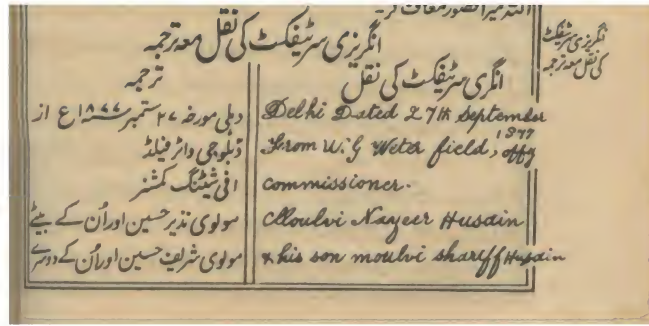 اللہ میرا قصور معاف کر۔
انگریزی سرٹیفکٹ کی نقل معہ ترجمہ
انگریزی سرٹیفکٹ
کی نقل معہ ترجمہ
انگری سرٹیفکٹ کی نقل
Delhi Dated 27th September
1877
From W. G Weter field, offg
commissioner.
Moulvi Nazeer Husain
& his son moulvi shariff Husain
ترجمہ
دہلی مورخہ ۲۷ ستمبر سنہ ۱۸۷۷ع از
ڈبلوجی واٹر فیلڈ
افی شیٹنگ کمشنر
مولوی نذیر حسین اور اُن کے بیٹے
مولوی شریف حسین اور اُن کے دوسرے